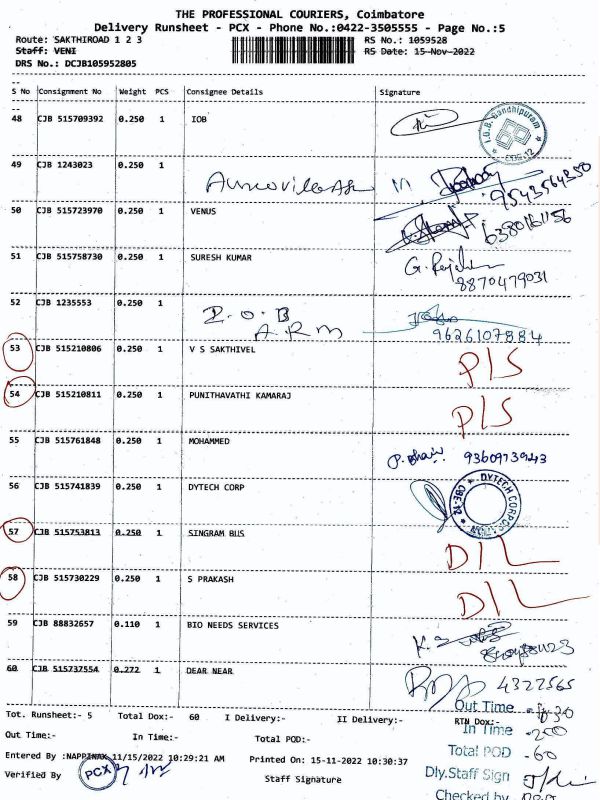 THE PROFESSIONAL COURIERS, Coimbatore
Delivery Runsheet - PCX - Phone No.:0422-3505555 - Page No.:5
Route: SAKTHIROAD 1 2 3 RS No.: 1059528
Staff: VENI RS Date: 15-Nov-2022
DRS No.: DCJB105952805
S No Consignment No Weight PCS Consignee Details Signature
48 CJB 515709392 0.250 1 IOB
I.O.B. Gandhipuram
CBE-12
49 CJB 1243023 0.250 1
9543564350
50 CJB 515723970 0.250 1 VENUS
6380161156
51 CJB 515758730 0.250 1 SURESH KUMAR
8870479031
52 CJB 1235553 0.250 1
I.O.B
A.R.M 9626107884
53 CJB 515210806 0.250 1 V S SAKTHIVEL P/S
54 CJB 515210811 0.250 1 PUNITHAVATHI KAMARAJ P/S
55 CJB 515761848 0.250 1 MOHAMMED
9360973943
56 CJB 515741839 0.250 1 DYTECH CORP
DYTECH CORPOR
CBE-12
57 CJB 515753813 0.250 1 SINGRAM BUS D/L
58 CJB 515730229 0.250 1 S PRAKASH D/L
59 CJB 88832657 0.110 1 BIO NEEDS SERVICES
60 CJB 515737554 0.272 1 DEAR NEAR 4322565
Tot. Runsheet:- 5 Total Dox:- 60 I Delivery:- II Delivery:- RTN Dox:-
Out Time
Out Time:- In Time:- Total POD:-
In Time - 200
Total POD - 60
Entered By :NAPPINAK 11/15/2022 10:29:21 AM Printed On: 15-11-2022 10:30:37
Dly.Staff Sign
Verified By PCX Staff Signature
Checked by